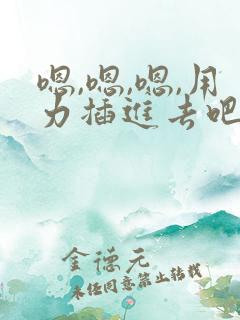 嗯,嗯,嗯,用
力插進去吧
金德元
未经同意禁止转载